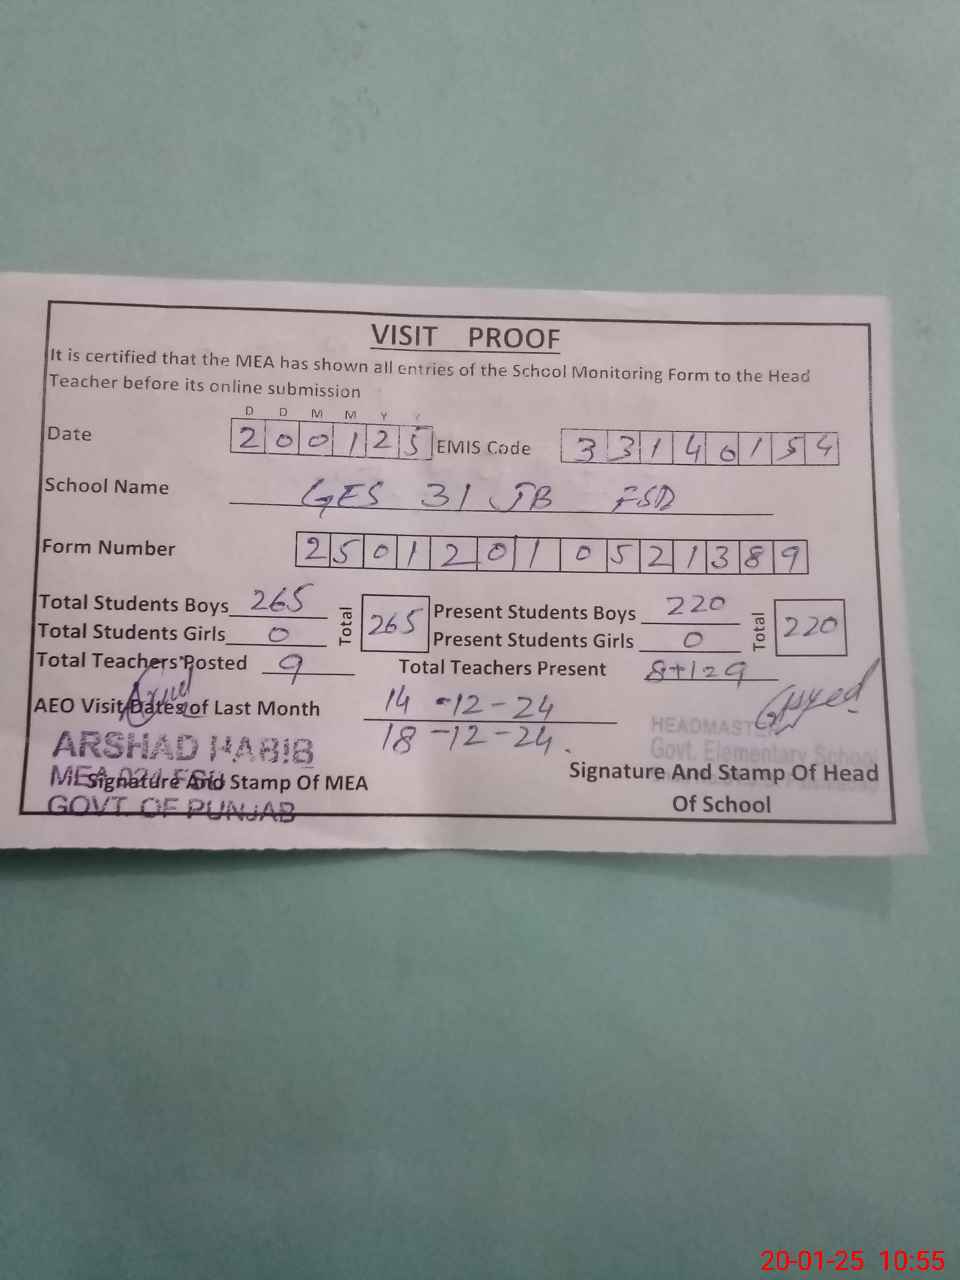 VISIT PROOF
It is certified that the MEA has shown all entries of the School Monitoring Form to the Head
Teacher before its online submission
D D M M Y Y
Date 200125 EMIS Code 33140154
School Name GES 31 JB FSD
Form Number 25012010521389
Total Students Boys 265 Total 265 Present Students Boys 220 Total 220
Total Students Girls 0 Present Students Girls 0
Total Teachers Posted 9 Total Teachers Present 8+1=9
AEO Visit Dates of Last Month 14-12-24
18-12-24.
ARSHAD HABIB
MEA
GOVT. OF PUNJAB
Signature And Stamp Of MEA
HEADMASTER
Govt. Elementary School
Signature And Stamp Of Head
Of School
20-01-25 10:55